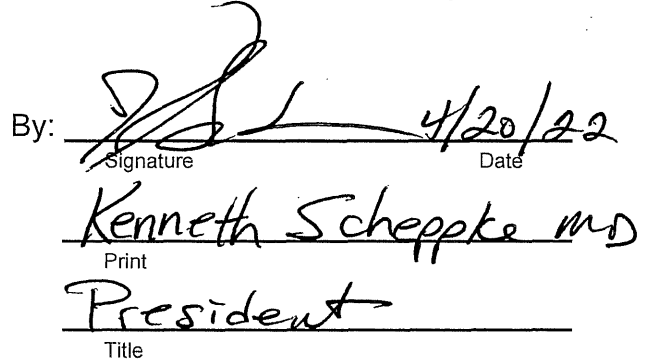 By: 4/20/22
Signature Date
Kenneth Scheppke MD
Print
President
Title